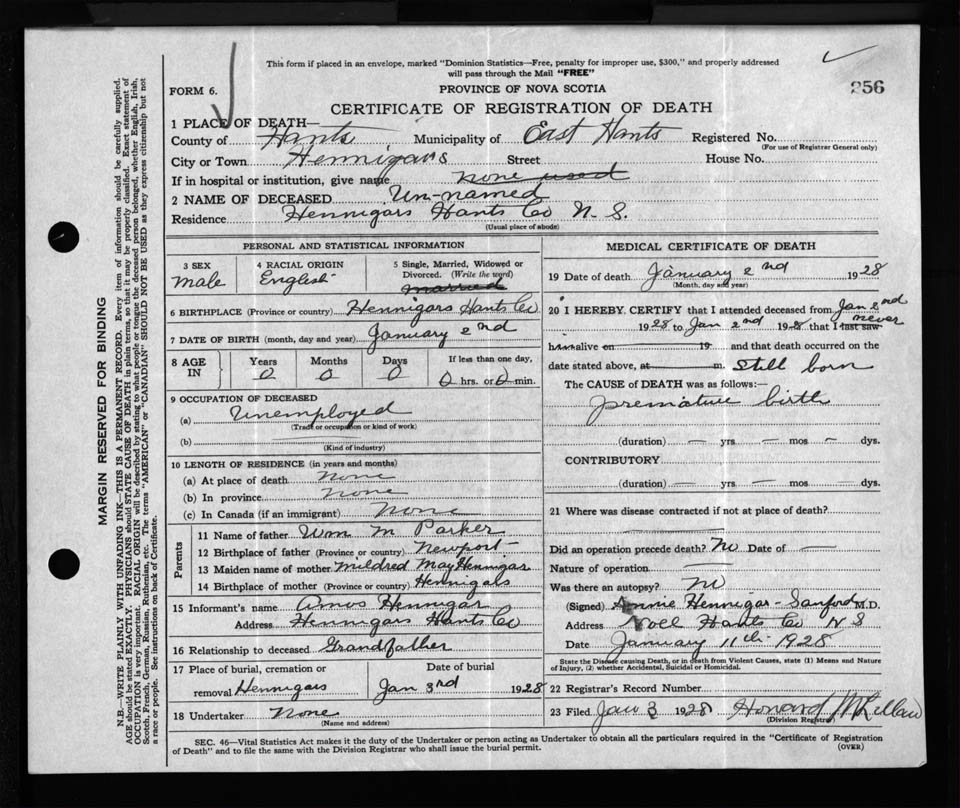 This form if placed in an envelope, marked "Dominion Statistics—Free, penalty for improper use, $300," and properly addressed
will pass through the Mail "FREE"
FORM 6.
PROVINCE OF NOVA SCOTIA
256
CERTIFICATE OF REGISTRATION OF DEATH
1 PLACE OF DEATH—
County of Hants Municipality of East Hants Registered No.
(For use of Registrar General only)
City or Town Hennigars Street House No.
If in hospital or institution, give name none used
2 NAME OF DECEASED Un-named
Residence Hennigars Hants Co N. S.
(Usual place of abode)
PERSONAL AND STATISTICAL INFORMATION
3 SEX 4 RACIAL ORIGIN 5 Single, Married, Widowed or
Divorced. (Write the word)
male English married
6 BIRTHPLACE (Province or country) Hennigars Hants Co
7 DATE OF BIRTH (month, day and year) January 2nd
8 AGE IN Years Months Days If less than one day,
0 0 0 0 hrs. or 0 min.
9 OCCUPATION OF DECEASED
(a) Unemployed
(Trade or occupation or kind of work)
(b)
(Kind of industry)
10 LENGTH OF RESIDENCE (in years and months)
(a) At place of death none
(b) In province none
(c) In Canada (if an immigrant) None
Parents
11 Name of father Wm M Parker
12 Birthplace of father (Province or country) Newport
13 Maiden name of mother Mildred May Hennigar
14 Birthplace of mother (Province or country) Hennigals
15 Informant's name Amos Hennigar
Address Hennigars Hants Co
16 Relationship to deceased Grandfather
17 Place of burial, cremation or Date of burial
removal Hennigars Jan 3rd 1928
18 Undertaker None
(Name and address)
MEDICAL CERTIFICATE OF DEATH
19 Date of death January 2nd 1928
(Month, day and year)
20 I HEREBY CERTIFY that I attended deceased from Jan 2nd
1928 to Jan 2nd 1928 that I last saw never
him alive on 19 and that death occurred on the
date stated above, at m. Still born
The CAUSE of DEATH was as follows:—
premature birth
(duration) — yrs. — mos — dys.
CONTRIBUTORY
(duration) — yrs. — mos — dys.
21 Where was disease contracted if not at place of death?
Did an operation precede death? No Date of —
Nature of operation —
Was there an autopsy? no
(Signed) Annie Hennigar-Sanford M.D.
Address Noel Hants Co N S
Date January 11th 1928
State the Disease causing Death, or in death from Violent Causes, state (1) Means and Nature
of Injury, (2) whether Accidental, Suicidal or Homicidal.
22 Registrar's Record Number
23 Filed Jan 3 1928 Howard McLellan
(Division Registrar)
SEC. 46—Vital Statistics Act makes it the duty of the Undertaker or person acting as Undertaker to obtain all the particulars required in the "Certificate of Registration
of Death" and to file the same with the Division Registrar who shall issue the burial permit.
(OVER)
MARGIN RESERVED FOR BINDING
N.B.—WRITE PLAINLY WITH UNFADING INK—THIS IS A PERMANENT RECORD. Every item of information should be carefully supplied.
AGE should be stated EXACTLY. PHYSICIANS should STATE CAUSE OF DEATH in plain terms, so that it may be properly classified. Exact statement of
OCCUPATION is very important. RACIAL ORIGIN will be described by stating to what people or tongue the deceased person belonged, whether English, Irish,
Scotch, French, German, Russian, Ruthenian, etc. The terms "AMERICAN" or "CANADIAN" SHOULD NOT BE USED as they express citizenship but not
a race or people. See instructions on back of Certificate.